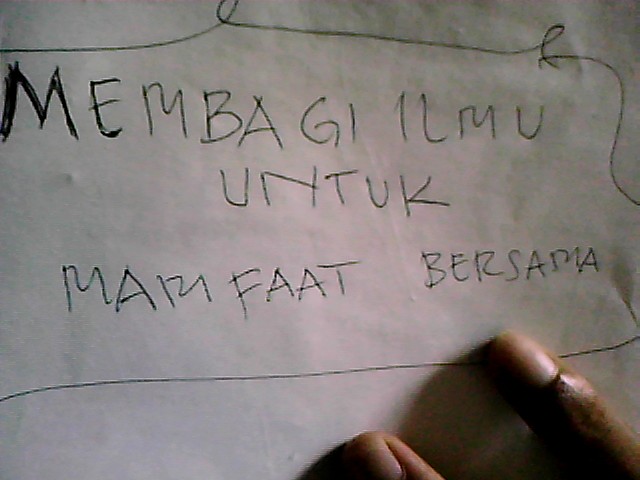 MEMBAGI ILMU
UNTUK
MAMFAAT BERSAMA